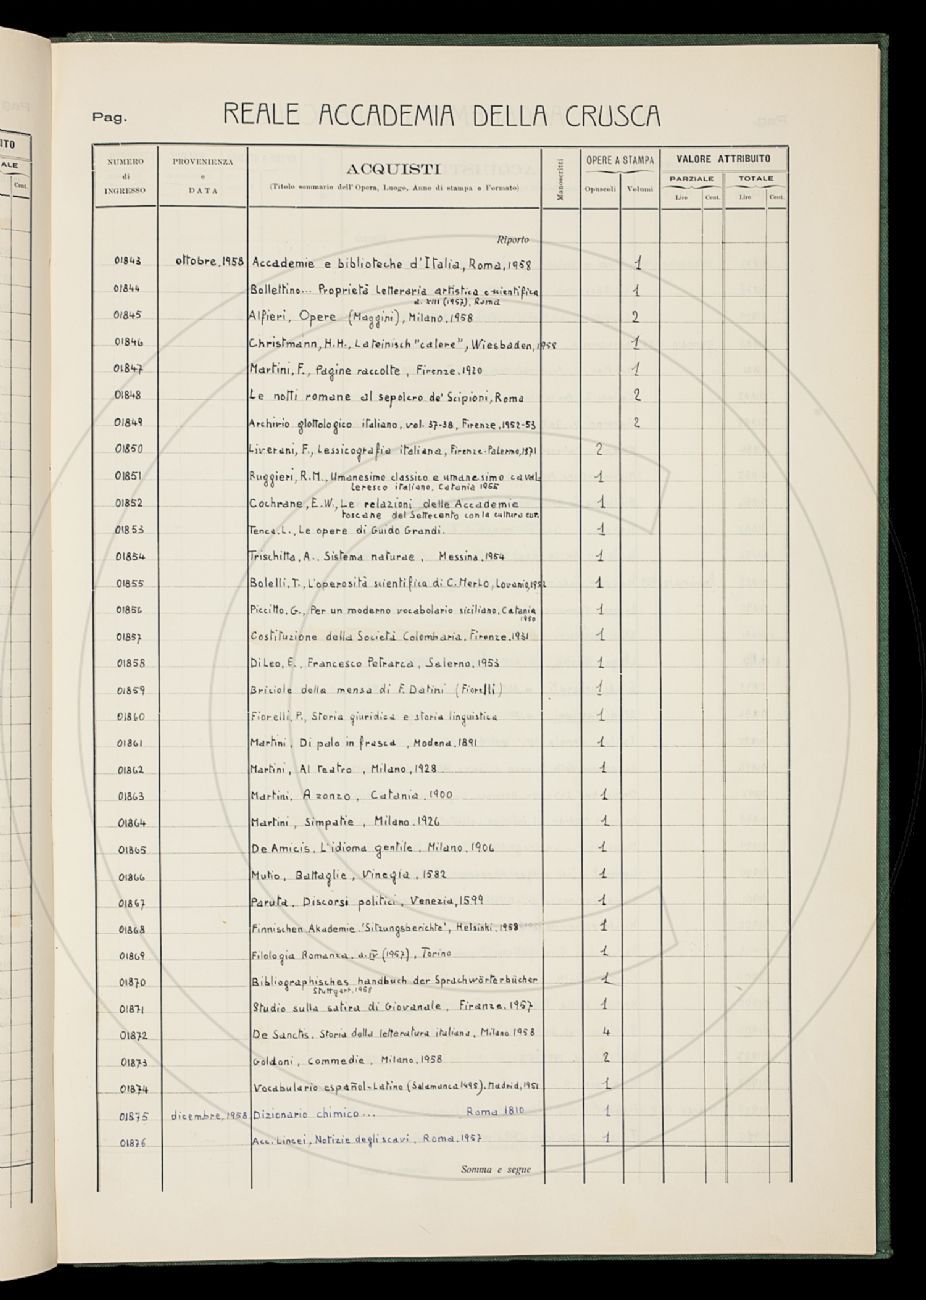 Pag. REALE ACCADEMIA DELLA CRUSCA
NUMERO di INGRESSO
PROVENIENZA e DATA
ACQUISTI
(Titolo sommario dell'Opera, Luogo, Anno di stampa e Formato)
Manoscritti
OPERE A STAMPA
Opuscoli Volumi
VALORE ATTRIBUITO
PARZIALE TOTALE
Lire Cent. Lire Cent.
Riporto
01843 ottobre, 1958 Accademie e biblioteche d'Italia, Roma, 1958 1
01844 Bollettino... Proprietà letteraria artistica e scientifica 1
a. XIII (1957), Roma
01845 Alfieri, Opere (Maggini), Milano, 1958 2
01846 Christmann, H.H., Lateinisch "calere", Wiesbaden, 1958 1
01847 Martini, F., Pagine raccolte, Firenze, 1920 1
01848 Le notti romane al sepolcro de' Scipioni, Roma 2
01849 Archivio glottologico italiano, vol. 37-38, Firenze, 1952-53 2
01850 Liverani, F., Lessicografia italiana, Firenze-Palermo, 1871 2
01851 Ruggieri, R.M., Umanesimo classico e umanesimo caval- 1
leresco italiano, Catania 1955
01852 Cochrane, E.W., Le relazioni delle Accademie 1
toscane del Settecento con la cultura eur.
01853 Tenca, L., Le opere di Guido Grandi. 1
01854 Trischitta, A., Sistema naturae, Messina, 1954 1
01855 Bolelli, T., L'operosità scientifica di C. Merlo, Lovanio, 1 1
01856 Piccitto, G., Per un moderno vocabolario siciliano, Catania 1
1950
01857 Costituzione della Società Colombaria, Firenze, 1931 1
01858 Di Leo, E., Francesco Petrarca, Salerno, 1953 1
01859 Briciole della mensa di F. Datini (Fiorelli) 1
01860 Fiorelli, P., Storia giuridica e storia linguistica 1
01861 Martini, Di palo in frasca, Modena, 1891 1
01862 Martini, Al teatro, Milano, 1928 1
01863 Martini, A zonzo, Catania, 1900 1
01864 Martini, Simpatie, Milano, 1926 1
01865 De Amicis, L'idioma gentile, Milano, 1906 1
01866 Mutio, Battaglie, Vinegia, 1582 1
01867 Paruta, Discorsi politici, Venezia, 1599 1
01868 Finnischen Akademie 'Sitzungsberichte', Helsinki, 1958 1
01869 Filologia Romanza, a. IV (1957), Torino 1
01870 Bibliographisches handbuch der Sprachwörterbücher 1
Stuttgart, 1958
01871 Studio sulla satira di Giovanale, Firenze, 1957 1
01872 De Sanctis, Storia della letteratura italiana, Milano 1958 4
01873 Goldoni, Commedie, Milano, 1958 2
01874 Vocabulario español-latino (Salamanca 1495), Madrid, 1951 1
01875 dicembre, 1958 Dizionario chimico... Roma 1810 1
01876 Acc. Lincei, Notizie degli scavi, Roma, 1957 1
Somma e segue
ITO
ALE
Cent.